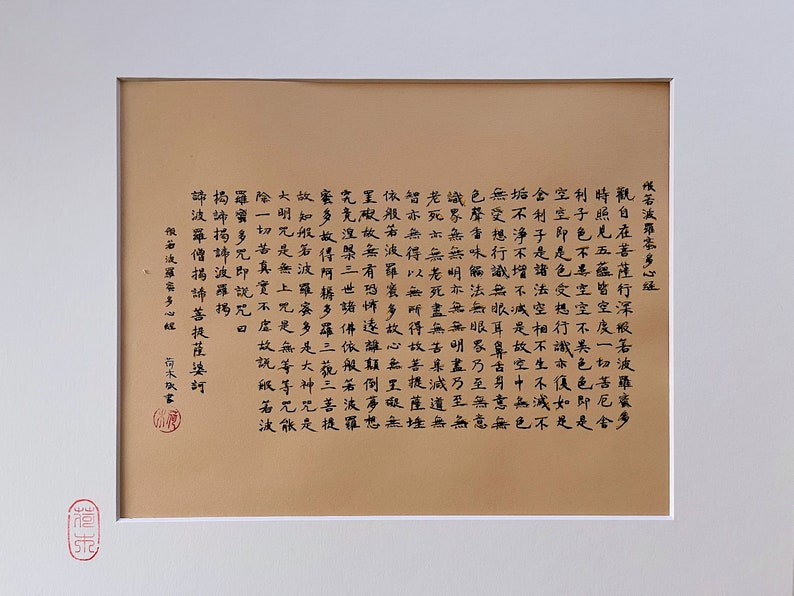 般若波羅蜜多心經
觀自在菩薩行深般若波羅蜜多
時照見五蘊皆空度一切苦厄舍
利子色不異空空不異色色即是
空空即是色受想行識亦復如是
舍利子是諸法空相不生不滅不
垢不淨不增不減是故空中無色
無受想行識無眼耳鼻舌身意無
色聲香味觸法無眼界乃至無意
識界無無明亦無無明盡乃至無
老死亦無老死盡無苦集滅道無
智亦無得以無所得故菩提薩埵
依般若波羅蜜多故心無罣礙無
罣礙故無有恐怖遠離顛倒夢想
究竟涅槃三世諸佛依般若波羅
蜜多故得阿耨多羅三藐三菩提
故知般若波羅蜜多是大神咒是
大明咒是無上咒是無等等咒能
除一切苦真實不虛故說般若波
羅蜜多咒即說咒曰
揭諦揭諦波羅揭
諦波羅僧揭諦菩提薩婆訶
般若波羅蜜多心經 荷木敬書
荷木